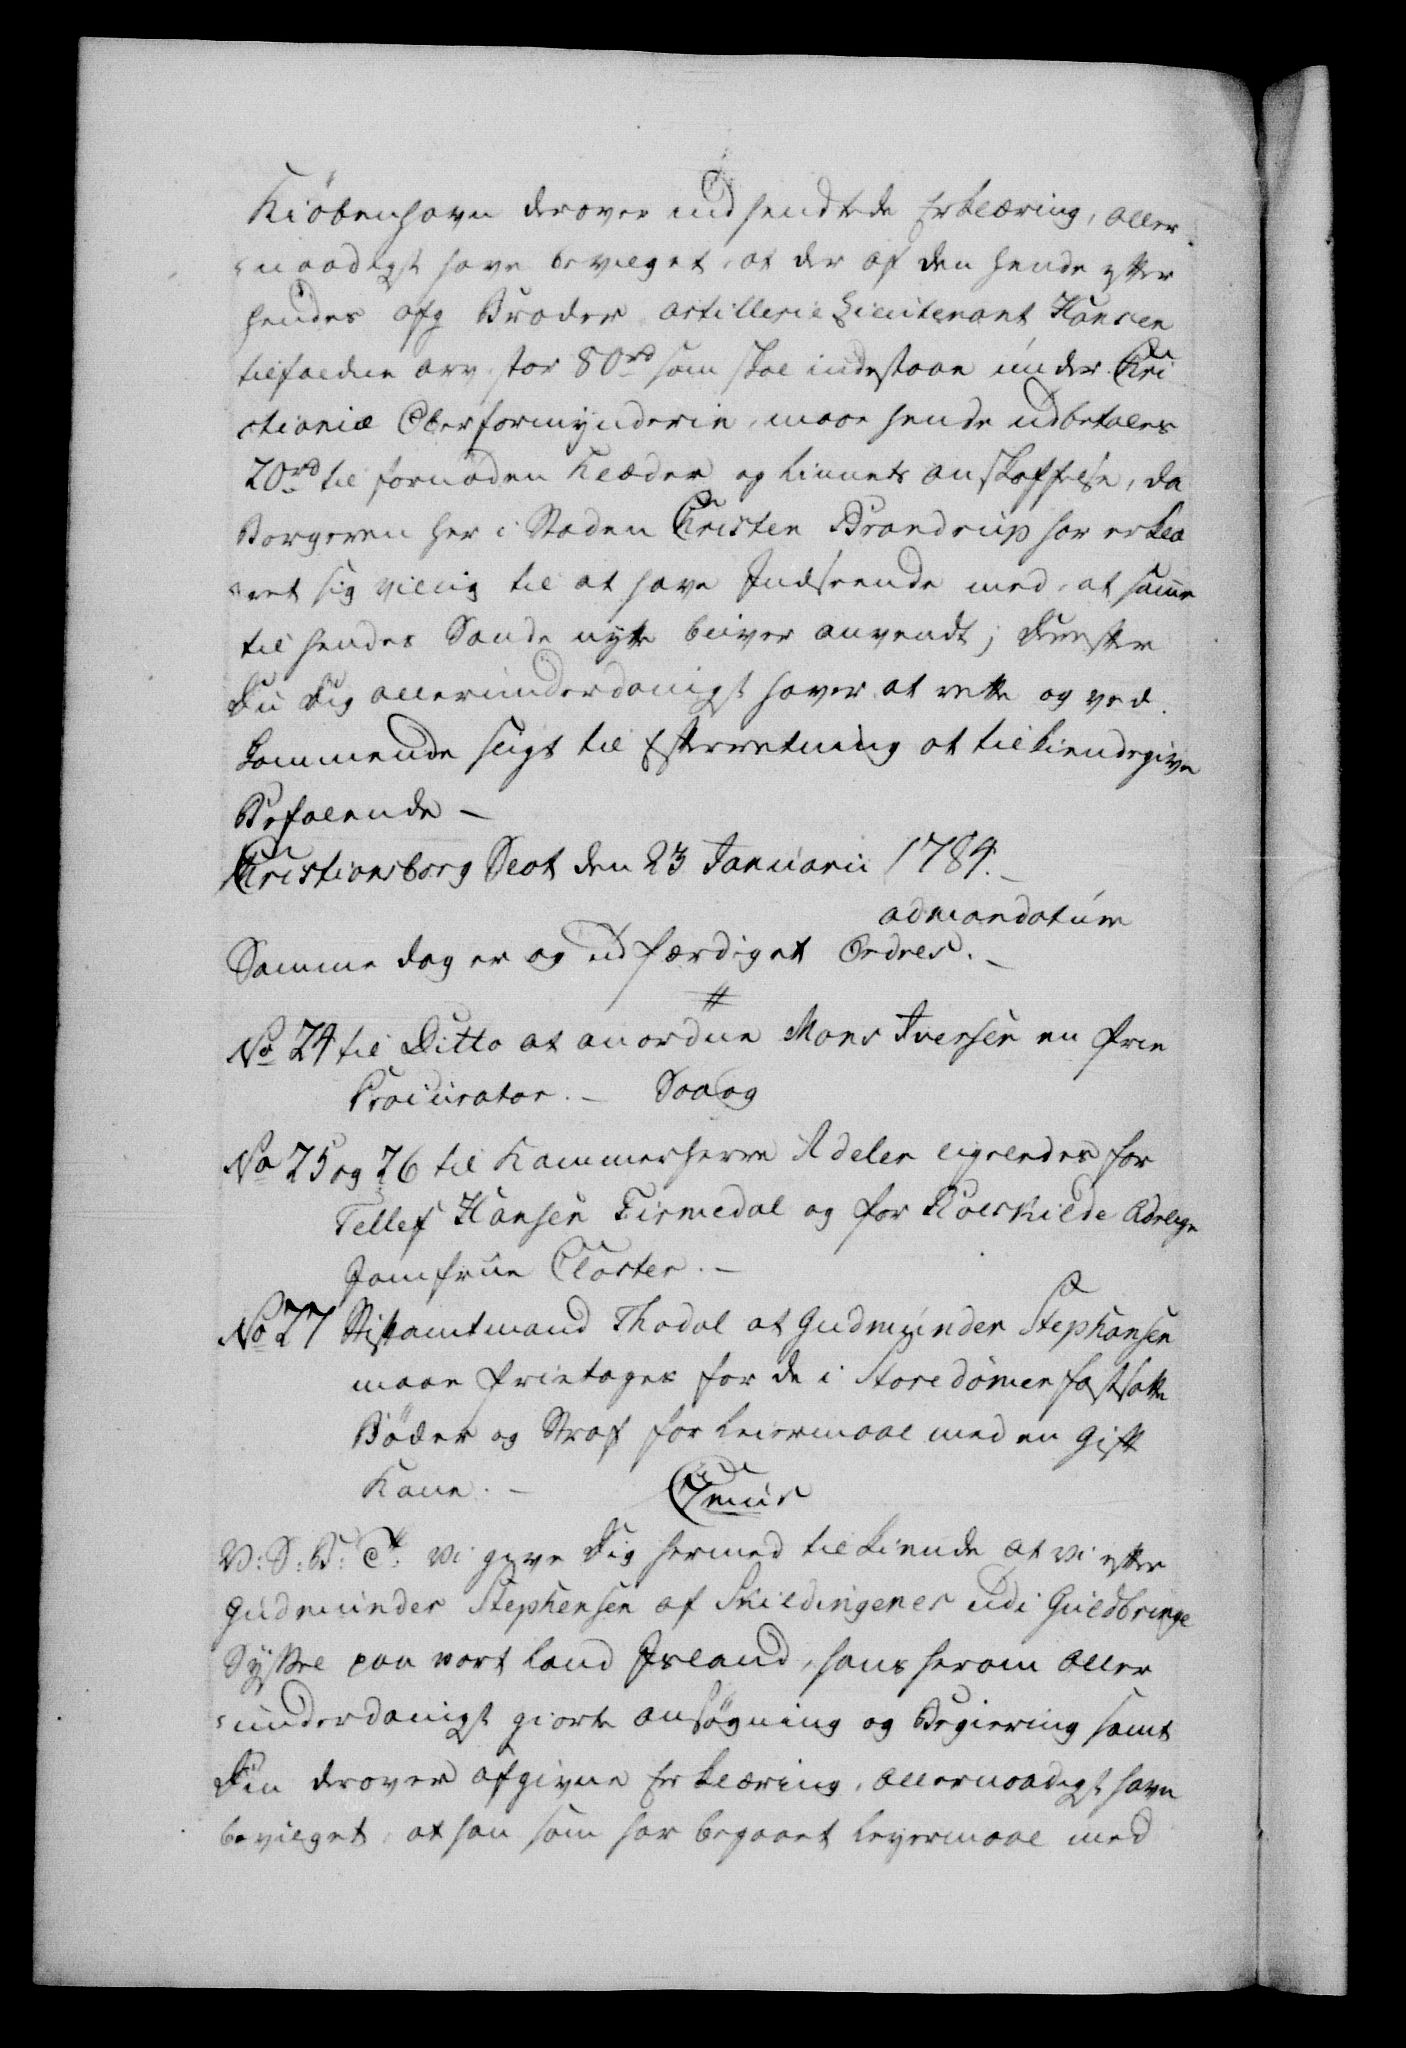 Kiöbenhavn derover indsendtde Erklæring, aller¬
=naadigst have bevilget, at der af den hende efter
hendes afg Broder Artillerie Lieutenant Hansen
tilfaldne arv, stor 80rd som skal indestaae under Chri
stianiæ Oberformynderie, maae hende udbetales
20rd til fornøden Klæder og Linnets anskaffelse, da
Borgeren her i Staden Christen Brandrup har erklæ
=ret sig villig til at have Indseende med, at samme
til hendes Sande nytte bliver anvendt; Derefter
Du Dig allerunderdanigst haver at rette og ved¬
kommende sligt til Efterretning at tilkiendegive
Befalende —
Christiansborg Slot den 23 Januarii 1784. —
ad mandatum
Samme dag er og udfærdiget Ordres. —
#
No 24 til Ditto at anordne Mons Iversen en frie
Procurator. — Saa og
No 25 og 26 til Kammerherre Adeler ligeledes for
Tellef Hansen Tirmedal og for Roeskilde Adelige
Jomfrue Closter. —
No 27 Stiftamtmand Thodal at Gudmunder Stephansen
maae frietages for de i Storedømen fastsatte
Bøder og Straf for Leiermaal med en Gift
Kone. —
V: S: B: T: Vi give Dig hermed tilkiende at vi efter
Gudmunder Stephensen af Skildingenes udi Guldbringe
Syssel paa vort Land Island, hans herom aller
=underdanigst giorte ansøgning og Begiering samt
Din derover afgivne Erklæring, allernaadigst have
bevilget, at han som har begaaet Leyermaal med